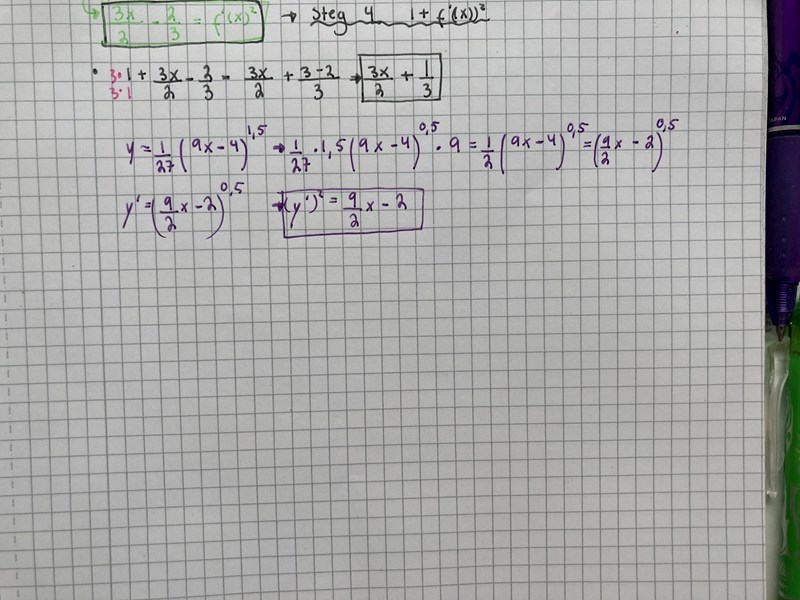 3x/2 - 2/3 = f'(x)² → Steg 4 1 + f'(x))²
• 3·1/3·1 + 3x/2 - 2/3 - 3x/2 + 3-2/3 → 3x/2 + 1/3
y = 1/27 (9x-4)^1,5 → 1/27 · 1,5 (9x-4)^0,5 · 9 = 1/2 (9x-4)^0,5 = (9/2 x - 2)^0,5
y' = (9/2 x - 2)^0,5 → (y')² = 9/2 x - 2
JAPAN